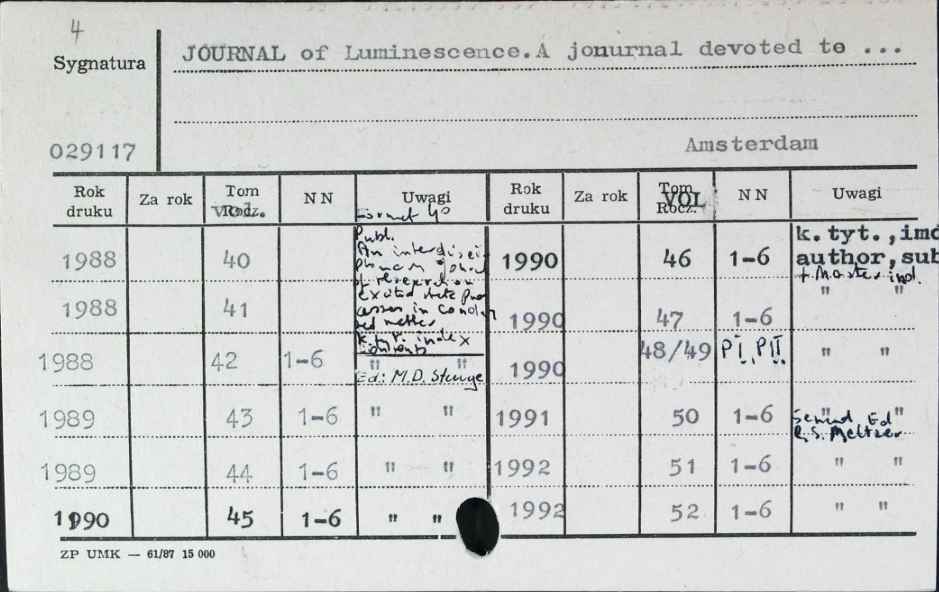 4
Sygnatura
JOURNAL of Luminescence.A jonurnal devoted to ...
029117
Amsterdam
Rok druku Za rok Tom Rocz. vol. N N Uwagi Rok druku Za rok Tom Rocz. VOL N N Uwagi
Format 4°
Publ.
An interdisci
plinary
of research on
excited state pro
cesses in conden
sed matter
k. tyt. index
contents
1988 40 1990 46 1-6 k.tyt.,imd
author,sub
+ Master ind.
1988 41 1990 47 1-6 " "
1988 42 1-6 " " 1990 48/49 PI, PII " "
Ed: M.D. Sturge
1989 43 1-6 " " 1991 50 1-6 " "
Ed
R.S. Meltzer
1989 44 1-6 " " 1992 51 1-6 " "
1990 45 1-6 " " 1992 52 1-6 " "
ZP UMK — 61/87 15 000